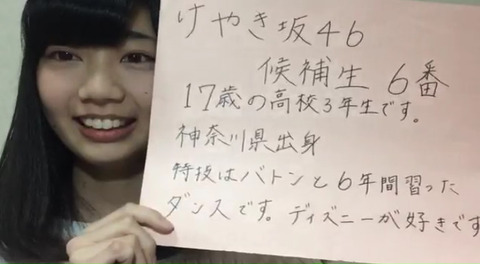 けやき坂46
候補生 6番
17歳の高校3年生です。
神奈川県出身
特技はバトンと6年間習った
ダンスです。ディズニーが好きです